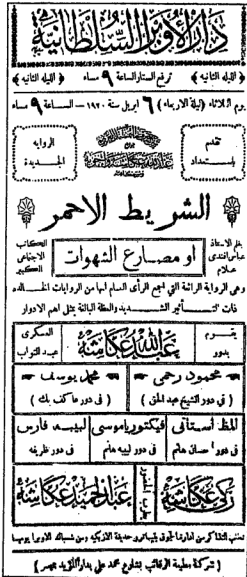 دار الأوبرا السلطانية
الليلة الثانية
ترفع الستار الساعة ٩ مساء
الليلة الثانية
يوم الثلاثاء (ليلة الاربعاء) ٦ ابريل سنة ١٩٢٠ — الساعة ٩ مساء
تقدم باستعداد
عبد الله عكاشه
الرواية الجديدة
الشريط الاحمر
بقلم الاستاذ عباس افندي علام
او مصارع الشهوات
الكاتب الاجتماعي الكبير
وهي الرواية الرائعة التي اجمع الرأي العام انها من الروايات الخالدة
ذات التأثير الشديد والعظة البالغة يمثل اهم الادوار
يقوم بدور
عبد الله عكاشه
العسكري عبد التواب
محمود رحمي
(في دور الشيخ عبد الحق)
محمد يوسف
(في دور عاكف بك)
المظ أستاتي
في دور احسان هانم
فيكتوريا موسى
في دور نبيهه هانم
لبيبه فارس
في دور ظريفه
زكي عكاشه
مطرب الجمهور
عبد الحميد عكاشه
تطلب التذاكر من ادارة الجوق بتياترو حديقة الازبكيه ومن شباك الاوبرا يوميا
(شركة مطبعة الرغائب بشارع محمد علي بدار المؤيد بمصر)